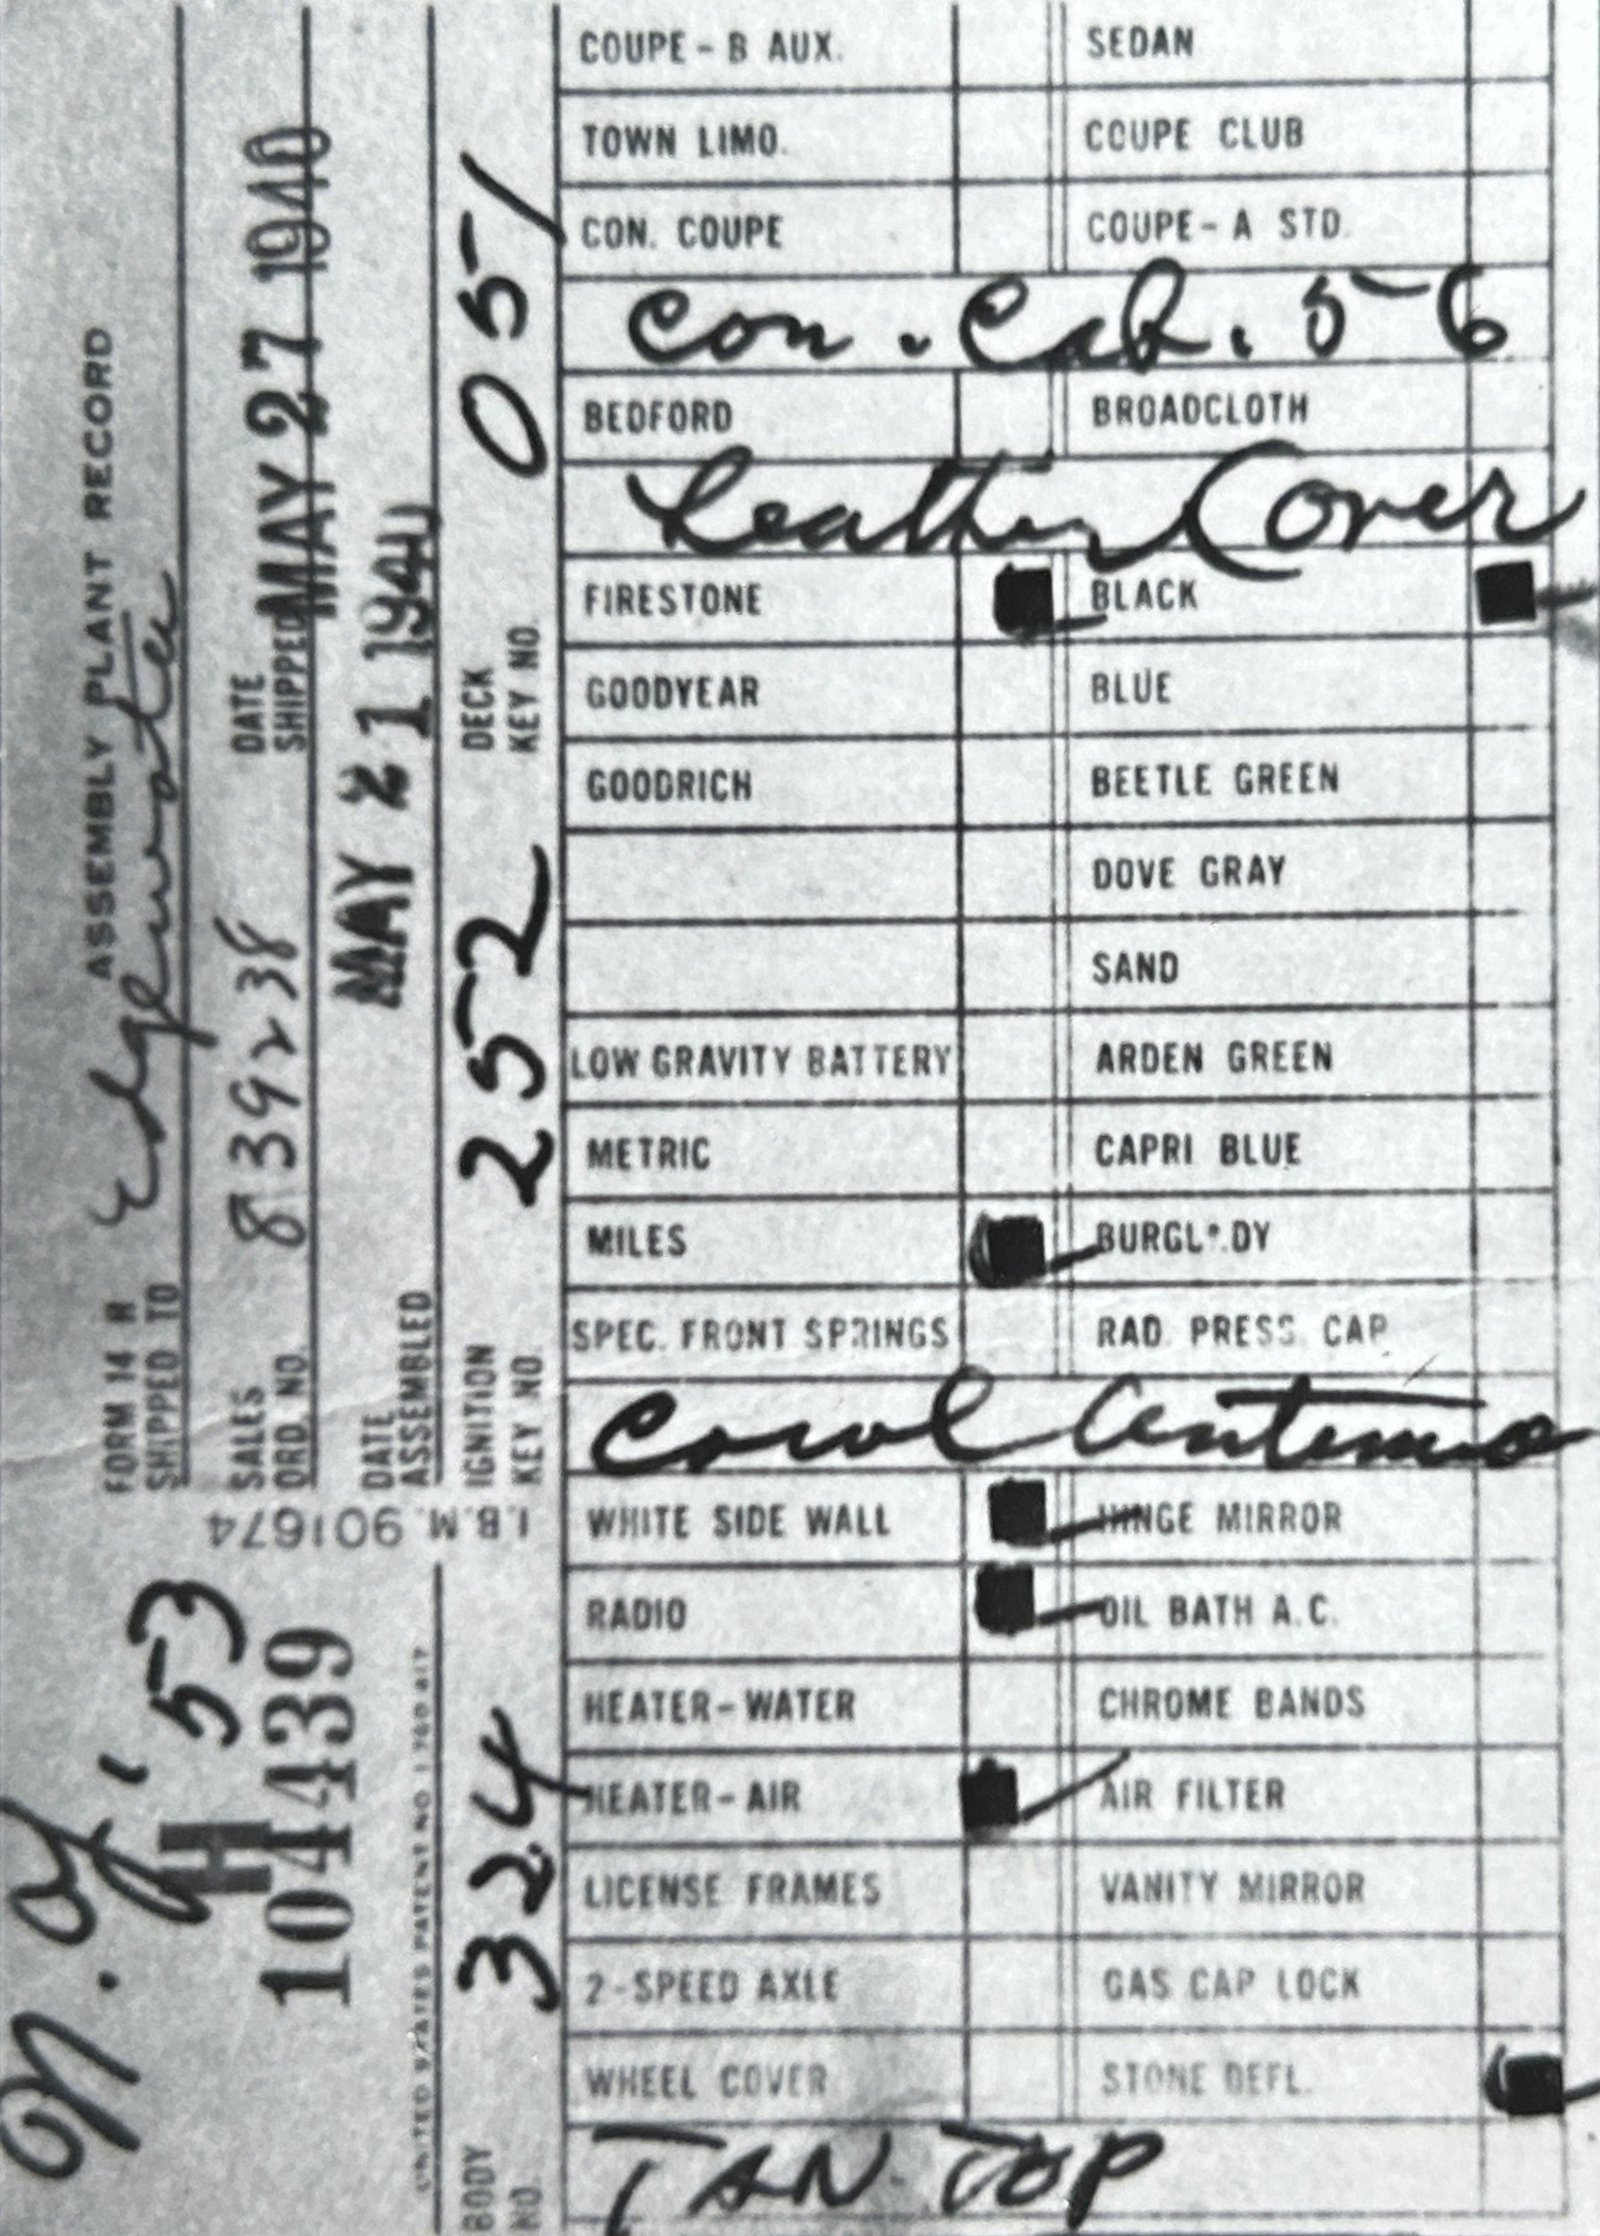 ASSEMBLY PLANT RECORD
FORM 14 R
SHIPPED TO Edgewater
SALES ORD. NO. 839238
DATE SHIPPED MAY 27 1940
DATE ASSEMBLED MAY 21 1940
IGNITION KEY NO. 252
DECK KEY NO. 051
I.B.M. 901674
N.Y. 53
H
104439
UNITED STATES PATENT NO 1 760 817
BODY NO. 324
COUPE - B AUX. SEDAN
TOWN LIMO. COUPE CLUB
CON. COUPE COUPE - A STD.
Con. Cab. 56
BEDFORD BROADCLOTH
Leather Cover
FIRESTONE BLACK
GOODYEAR BLUE
GOODRICH BEETLE GREEN
DOVE GRAY
SAND
LOW GRAVITY BATTERY ARDEN GREEN
METRIC CAPRI BLUE
MILES
SPEC. FRONT SPRINGS RAD. PRESS. CAP
Cowl Antenna
WHITE SIDE WALL HINGE MIRROR
RADIO OIL BATH A.C.
HEATER - WATER CHROME BANDS
HEATER - AIR AIR FILTER
LICENSE FRAMES VANITY MIRROR
2 - SPEED AXLE GAS CAP LOCK
WHEEL COVER STONE DEFL.
TAN TOP